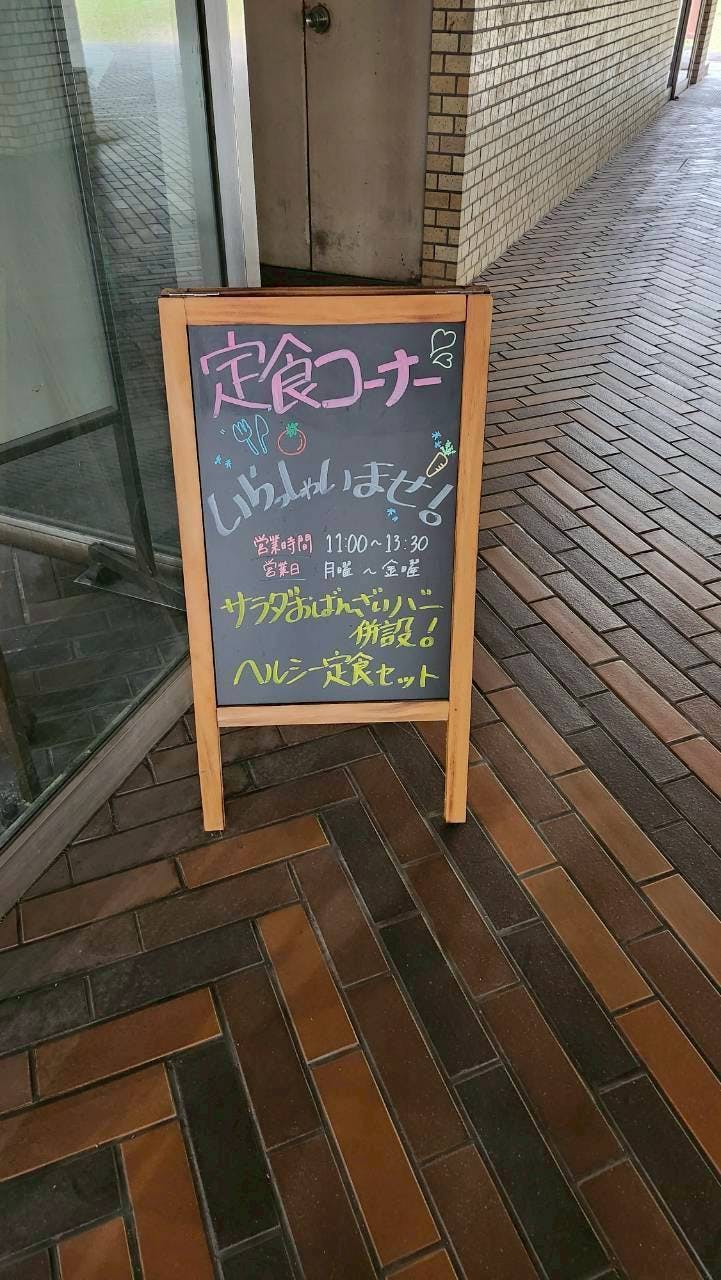 定食コーナー
いらっしゃいませ!
営業時間 11:00～13:30
営業日 月曜 ～ 金曜
サラダおばんざいバー
併設!
ヘルシー定食セット